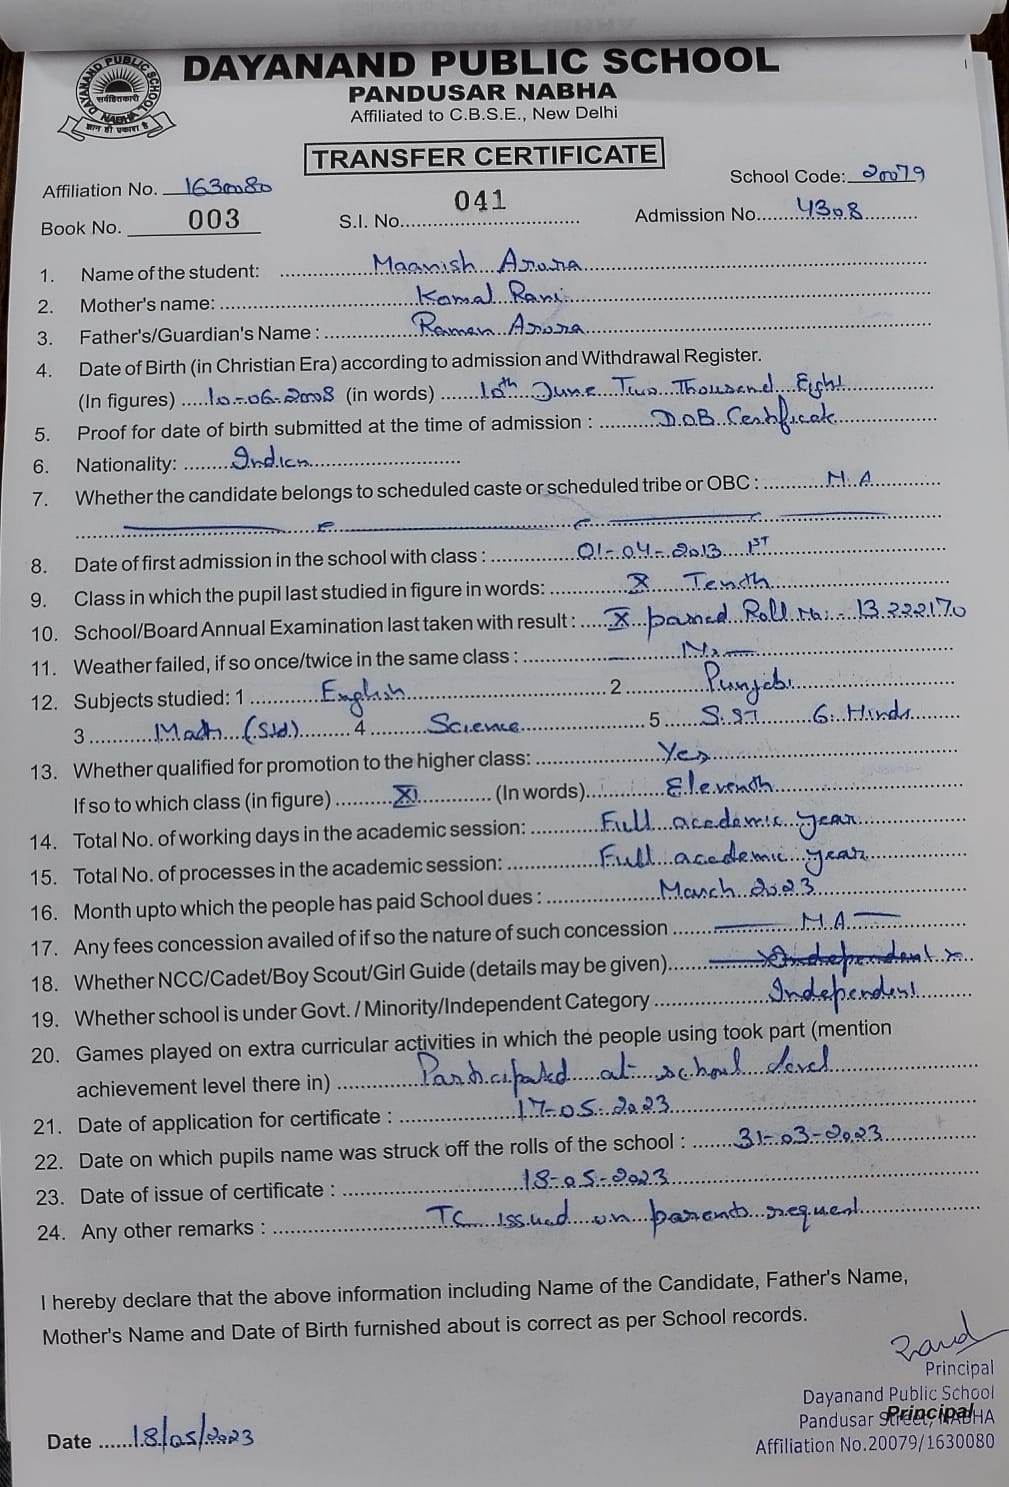 DAYANAND PUBLIC SCHOOL
PANDUSAR NABHA
Affiliated to C.B.S.E., New Delhi
DAYANAND PUBLIC SCHOOL
सर्वहितकारी
NABHA
ज्ञान ही प्रकाश है
TRANSFER CERTIFICATE
Affiliation No. 1630080 School Code: 20079
Book No. 003 S.I. No. 041 Admission No. 4308
1. Name of the student: Maanish Arora
2. Mother's name: Komal Rani
3. Father's/Guardian's Name : Raman Arora
4. Date of Birth (in Christian Era) according to admission and Withdrawal Register.
(In figures) 10-06-2008 (in words) 10th June Two Thousand Eight
5. Proof for date of birth submitted at the time of admission : D.O.B. Certificate
6. Nationality: Indian
7. Whether the candidate belongs to scheduled caste or scheduled tribe or OBC : N.A.
8. Date of first admission in the school with class : 01-04-2013 1ST
9. Class in which the pupil last studied in figure in words: X Tenth
10. School/Board Annual Examination last taken with result : X passed Roll No:- 13222170
11. Weather failed, if so once/twice in the same class : No
12. Subjects studied: 1 English 2 Punjabi
3 Math (Std.) 4 Science 5 S.ST 6. Hindi
13. Whether qualified for promotion to the higher class: Yes
If so to which class (in figure) XI (In words) Eleventh
14. Total No. of working days in the academic session: Full academic year
15. Total No. of processes in the academic session: Full academic year
16. Month upto which the people has paid School dues : March 2023
17. Any fees concession availed of if so the nature of such concession N.A.
18. Whether NCC/Cadet/Boy Scout/Girl Guide (details may be given) Independent
19. Whether school is under Govt. / Minority/Independent Category Independent
20. Games played on extra curricular activities in which the people using took part (mention
achievement level there in) Participated at school level
21. Date of application for certificate : 17-05-2023
22. Date on which pupils name was struck off the rolls of the school : 31-03-2023
23. Date of issue of certificate : 18-05-2023
24. Any other remarks : TC issued on parents request
I hereby declare that the above information including Name of the Candidate, Father's Name,
Mother's Name and Date of Birth furnished about is correct as per School records.
Principal
Dayanand Public School
Pandusar Street, NABHA
Principal
Affiliation No.20079/1630080
Date 18/05/2023